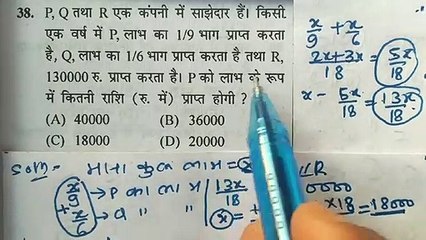 38. P, Q तथा R एक कंपनी में साझेदार हैं। किसी
एक वर्ष में P, लाभ का 1/9 भाग प्राप्त करता
है, Q, लाभ का 1/6 भाग प्राप्त करता है तथा R,
130000 रु. प्राप्त करता है। P को लाभ के रूप
में कितनी राशि (रु. में) प्राप्त होगी ?
(A) 40000 (B) 36000
(C) 18000 (D) 20000
x/9 + x/6
2x+3x/18 = 5x/18
x - 5x/18 = 13x/18
Som - माना कुल लाभ = x
x/9 → P का लाभ
+ x/6 → Q " "
13x/18
x =
x18 = 18000